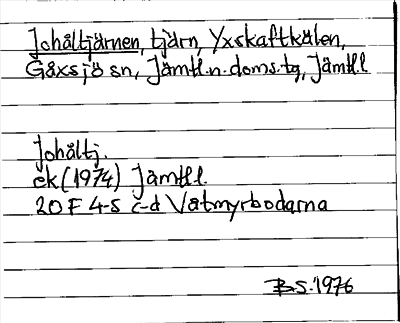 Johåltjärnen, tjärn, Yxskaftkälen,
Gåxsjö sn, Jämtl.n.doms.tg, Jämtl.l
Johåltj.
ek (1974) Jämtl.l.
20 F 4-5 c-d Våtmyrbodarna
B.S. 1976